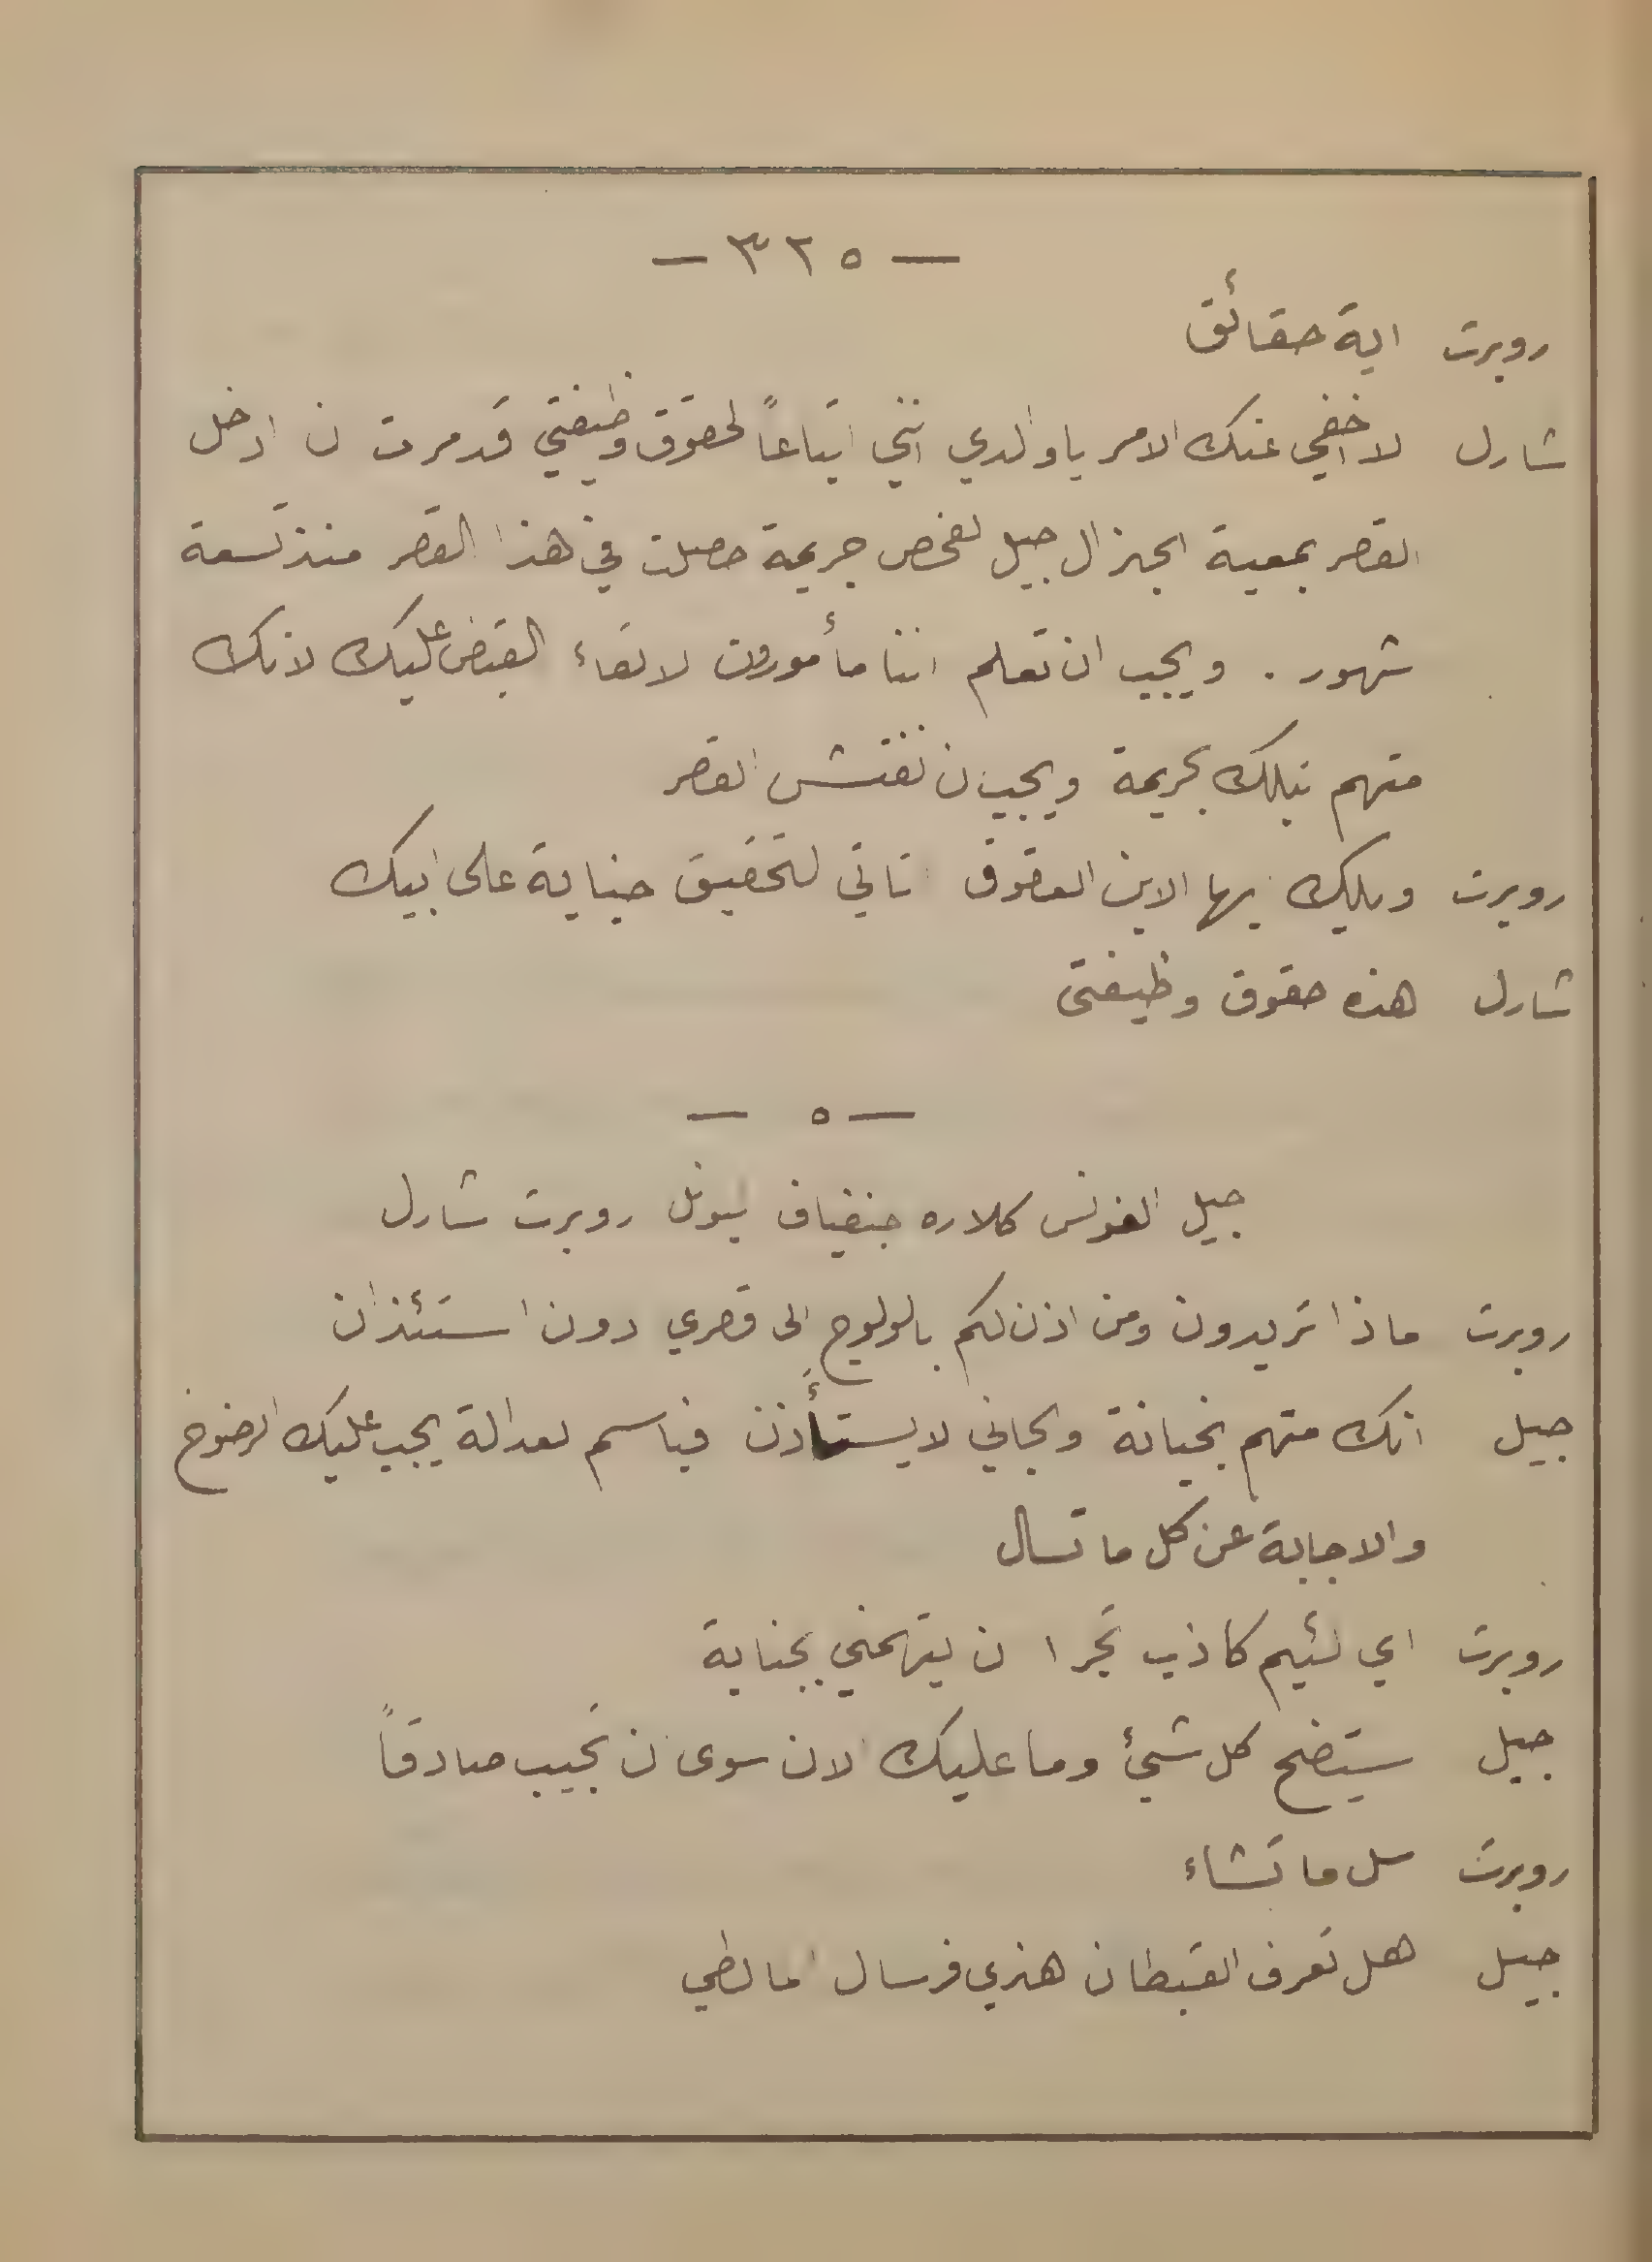 — ٣٢٥ —
روبرت اية حقائق
شارل لا اخفي عنك الامر يا والدي انني اتباعاً لحقوق وظيفتي قد امرت ان ادخل
القصر بمعية الجنرال جيل لفحص جريمة حصلت في هذا القصر منذ تسعة
شهور . ويجب ان تعلم اننا مأمورون لالقاء القبض عليك لانك
متهم بتلك الجريمة ويجب ان نفتش القصر
روبرت ويلك ايها الابن العقوق اتاتي لتحقيق جناية على ابيك
شارل هذه حقوق وظيفتي
— ٥ —
جيل الفونس كلاره جنفياف ليونل روبرت شارل
روبرت ماذا تريدون ومن اذن لكم بالولوج الى قصري دون استئذان
جيل انك متهم بخيانة والجاني لا يستأذن فباسم العدالة يجب عليك الرضوخ
والاجابة عن كل ما تسال
روبرت اي لئيم كاذب تجرا ان يتهمني بجناية
جيل سيتضح كل شيئ وما عليك الان سوى ان تجيب صادقاً
روبرت سل ما تشاء
جيل هل تعرف القبطان هنري فرسال المالطي